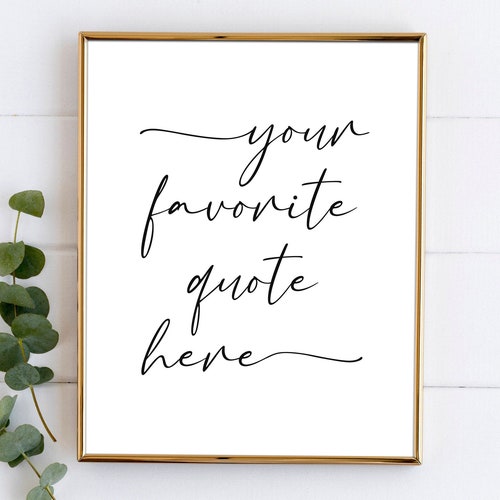 your
favorite
quote
here